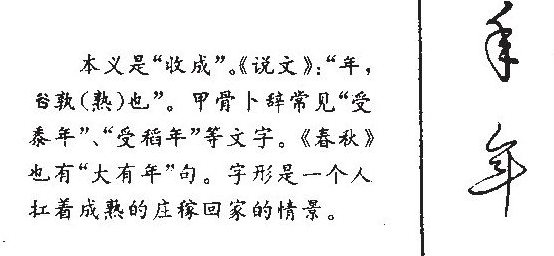 本义是“收成”。《说文》:“年，
谷孰(熟)也”。甲骨卜辞常见“受
泰年”、“受稻年”等文字。《春秋》
也有“大有年”句。字形是一个人
扛着成熟的庄稼回家的情景。
年
年